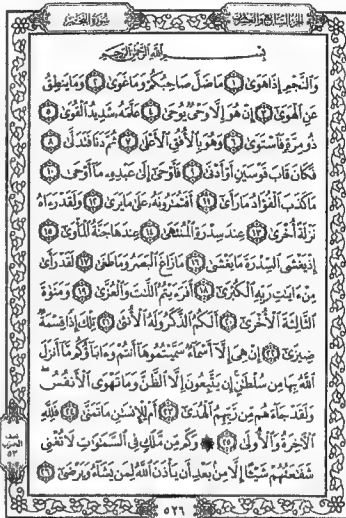 الجزء السابع والعشرون
سورة النجم
بِسْمِ اللَّهِ الرَّحْمَٰنِ الرَّحِيمِ
وَالنَّجْمِ إِذَا هَوَىٰ ١ مَا ضَلَّ صَاحِبُكُمْ وَمَا غَوَىٰ ٢ وَمَا يَنطِقُ
عَنِ الْهَوَىٰ ٣ إِنْ هُوَ إِلَّا وَحْيٌ يُوحَىٰ ٤ عَلَّمَهُ شَدِيدُ الْقُوَىٰ ٥
ذُو مِرَّةٍ فَاسْتَوَىٰ ٦ وَهُوَ بِالْأُفُقِ الْأَعْلَىٰ ٧ ثُمَّ دَنَا فَتَدَلَّىٰ ٨
فَكَانَ قَابَ قَوْسَيْنِ أَوْ أَدْنَىٰ ٩ فَأَوْحَىٰ إِلَىٰ عَبْدِهِ مَا أَوْحَىٰ ١٠
مَا كَذَبَ الْفُؤَادُ مَا رَأَىٰ ١١ أَفَتُمَارُونَهُ عَلَىٰ مَا يَرَىٰ ١٢ وَلَقَدْ رَءَاهُ
نَزْلَةً أُخْرَىٰ ١٣ عِندَ سِدْرَةِ الْمُنتَهَىٰ ١٤ عِندَهَا جَنَّةُ الْمَأْوَىٰ ١٥
إِذْ يَغْشَى السِّدْرَةَ مَا يَغْشَىٰ ١٦ مَا زَاغَ الْبَصَرُ وَمَا طَغَىٰ ١٧ لَقَدْ رَأَىٰ
مِنْ ءَايَٰتِ رَبِّهِ الْكُبْرَىٰ ١٨ أَفَرَءَيْتُمُ اللَّٰتَ وَالْعُزَّىٰ ١٩ وَمَنَوٰةَ
الثَّالِثَةَ الْأُخْرَىٰ ٢٠ أَلَكُمُ الذَّكَرُ وَلَهُ الْأُنثَىٰ ٢١ تِلْكَ إِذًا قِسْمَةٌ
ضِيزَىٰ ٢٢ إِنْ هِيَ إِلَّا أَسْمَاءٌ سَمَّيْتُمُوهَا أَنتُمْ وَءَابَاؤُكُم مَّا أَنزَلَ
اللَّهُ بِهَا مِن سُلْطَٰنٍ إِن يَتَّبِعُونَ إِلَّا الظَّنَّ وَمَا تَهْوَى الْأَنفُسُ
وَلَقَدْ جَاءَهُم مِّن رَّبِّهِمُ الْهُدَىٰ ٢٣ أَمْ لِلْإِنسَٰنِ مَا تَمَنَّىٰ ٢٤ فَلِلَّهِ
الْءَاخِرَةُ وَالْأُولَىٰ ٢٥ ۞ وَكَم مِّن مَّلَكٍ فِي السَّمَٰوَٰتِ لَا تُغْنِي
شَفَٰعَتُهُمْ شَيْئًا إِلَّا مِن بَعْدِ أَن يَأْذَنَ اللَّهُ لِمَن يَشَاءُ وَيَرْضَىٰ ٢٦
نصف
الحزب
٥٣
٥٢٦